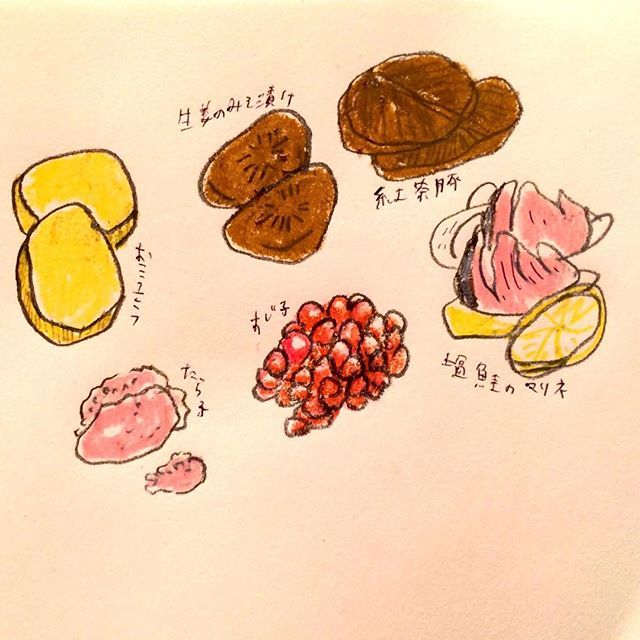 生姜のみそ漬け
紅奈豚
おこうこ
すじ子
塩鮭のマリネ
たら子